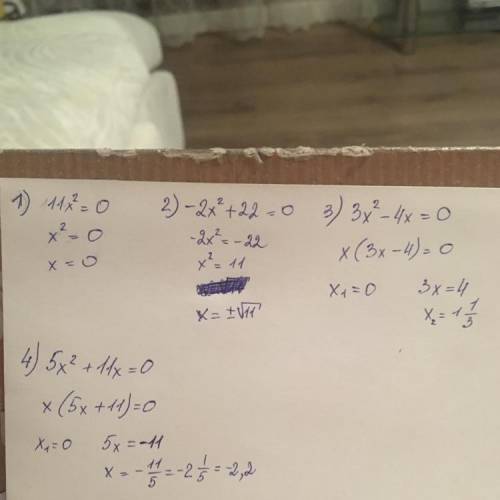 1) 11x² = 0
x² = 0
x = 0
2) -2x² + 22 = 0
-2x² = -22
x² = 11
x = ±√11
3) 3x² - 4x = 0
x(3x - 4) = 0
x₁ = 0 3x = 4
x₂ = 1 1/3
4) 5x² + 11x = 0
x(5x + 11) = 0
x₁ = 0 5x = -11
x = -11/5 = -2 1/5 = -2,2